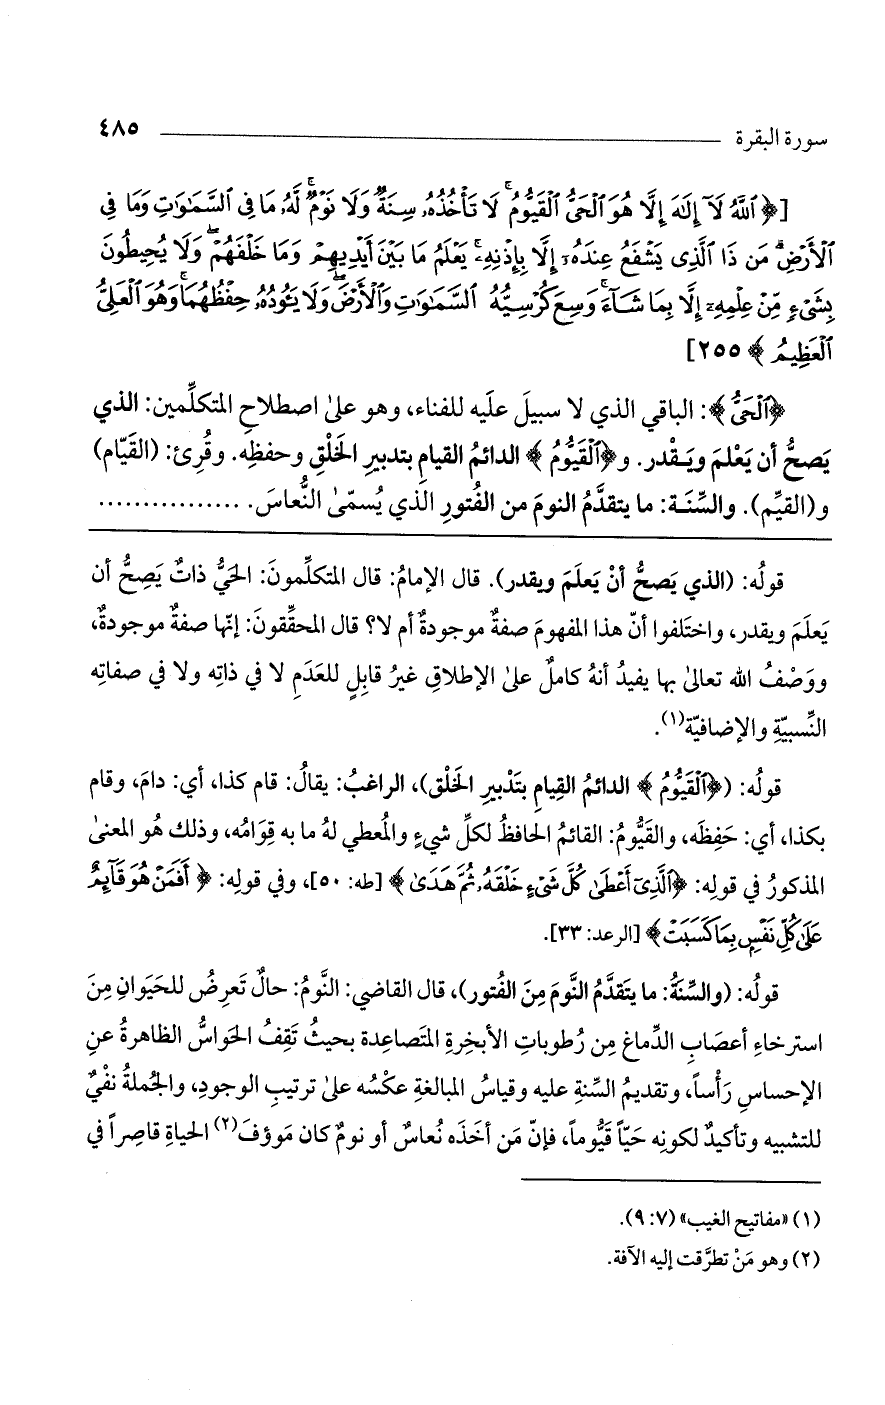 سورة البقرة ٤٨٥
[﴿ ٱللَّهُ لَآ إِلَٰهَ إِلَّا هُوَ ٱلْحَىُّ ٱلْقَيُّومُ ۚ لَا تَأْخُذُهُۥ سِنَةٌ وَلَا نَوْمٌ ۚ لَّهُۥ مَا فِى ٱلسَّمَٰوَٰتِ وَمَا فِى
ٱلْأَرْضِ ۗ مَن ذَا ٱلَّذِى يَشْفَعُ عِندَهُۥٓ إِلَّا بِإِذْنِهِۦ ۚ يَعْلَمُ مَا بَيْنَ أَيْدِيهِمْ وَمَا خَلْفَهُمْ ۖ وَلَا يُحِيطُونَ
بِشَىْءٍ مِّنْ عِلْمِهِۦٓ إِلَّا بِمَا شَآءَ ۚ وَسِعَ كُرْسِيُّهُ ٱلسَّمَٰوَٰتِ وَٱلْأَرْضَ ۖ وَلَا يَـُٔودُهُۥ حِفْظُهُمَا ۚ وَهُوَ ٱلْعَلِىُّ
ٱلْعَظِيمُ ﴾ ٢٥٥]
﴿ٱلْحَىُّ﴾: الباقي الذي لا سبيلَ علَيه للفناء، وهو علىٰ اصطلاحِ المتكلِّمين: الذي
يَصحُّ أن يَعْلمَ ويَـقْدر. و﴿ٱلْقَيُّومُ ﴾ الدائمُ القيامِ بتدبيرِ الخَلْقِ وحفظِه. وقُرِئ: (القَيّام)
و(القيِّم). والسِّنَـة: ما يتقدَّمُ النومَ من الفُتورِ الذي يُسمّىٰ النُّعاسَ. ................
قولُه: (الذي يَصحُّ أنْ يَعلَمَ ويقدر). قال الإمامُ: قال المتكلِّمونَ: الحَيُّ ذاتٌ يَصِحُّ أن
يَعلَمَ ويقدر، واختَلفوا أنّ هذا المفهومَ صفةٌ موجودةٌ أم لا؟ قال المحقِّقونَ: إنّها صفةٌ موجودةٌ،
ووَصْفُ الله تعالىٰ بها يفيدُ أنهُ كاملٌ علىٰ الإطلاقِ غيرُ قابِلٍ للعَدَمِ لا في ذاتِه ولا في صفاتِه
النِّسبيّةِ والإضافيّة(١).
قولُه: (﴿ٱلْقَيُّومُ ﴾ الدائمُ القيامِ بتَدْبيرِ الخَلْق)، الراغبُ: يقالُ: قام كذا، أي: دامَ، وقام
بكذا، أي: حَفِظَه، والقَيُّومُ: القائمُ الحافظُ لكلِّ شيءٍ والمُعطي لهُ ما به قِوامُه، وذلك هُو المعنىٰ
المذكورُ في قولِه: ﴿ٱلَّذِىٓ أَعْطَىٰ كُلَّ شَىْءٍ خَلْقَهُۥ ثُمَّ هَدَىٰ﴾ [طه: ٥٠]، وفي قولِه: ﴿ أَفَمَنْ هُوَ قَآئِمٌ
عَلَىٰ كُلِّ نَفْسٍۭ بِمَا كَسَبَتْ﴾ [الرعد: ٣٣].
قولُه: (والسِّنَةُ: ما يتَقدَّمُ النَّومَ مِنَ الفُتور)، قال القاضي: النَّومُ: حالٌ تَعرِضُ للحَيَوانِ مِنَ
استرخاءِ أعصَابِ الدِّماغِ مِن رُطوباتِ الأبخِرةِ المتَصاعِدة بحيثُ تَقِفُ الحَواسُّ الظاهرةُ عنِ
الإحساسِ رَأْساً، وتقديمُ السِّنةِ عليه وقياسُ المبالغةِ عكْسُه علىٰ ترتيبِ الوجودِ، والجُملةُ نفْيٌ
للتشبيه وتأكيدٌ لكونِه حَيّاً قَيُّوماً، فإنّ مَن أخَذَه نُعاسٌ أو نومٌ كان مَوؤفَ(٢) الحياةِ قاصِراً في
(١) «مفاتيح الغيب» (٧: ٩).
(٢) وهو مَنْ تطرَّقت إليه الآفة.